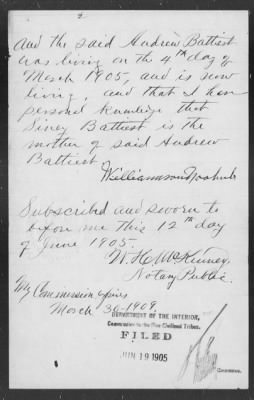 2
And the said Andrew Battiest
was living on the 4th day of
March 1905, and is now
living, and that I have
personal knowledge that
Siney Battiest is the
mother of said Andrew
Battiest
Williamson
Subscribed and sworn to
before me this 12th day
of June 1905.
W. H. McKinney
Notary Public
My Commission Expires
March 30 1909
DEPARTMENT OF THE INTERIOR,
Commission to the Five Civilized Tribes.
FILED
JUN 19 1905